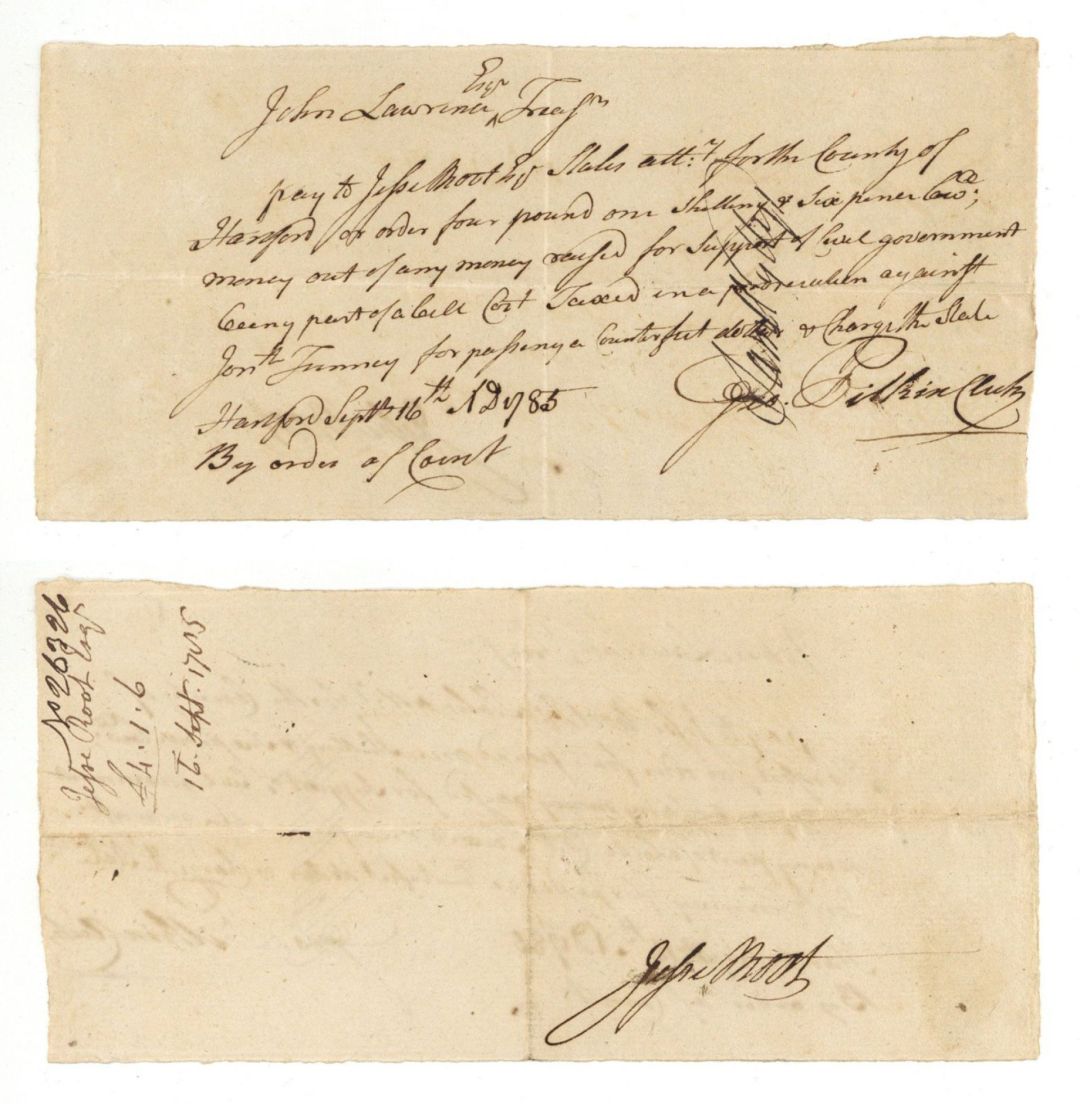 John Lawrence Esqr Treasr
pay to Jesse Root Esqr States att:y for the County of
Hartford or order four pound one Shilling & Six pence
money out of any money raised for Support of Civel government
being part of a bill Cost Taxed in a against
Jonth for passing a Counterfeit & Charge the State
Hartford Septr 16th AD 1785
Geo. Pitkin Clerk
By order of Court
No 26326
Jesse Root Esqr
£4.1.6
16. Sept. 1785
Jesse Root